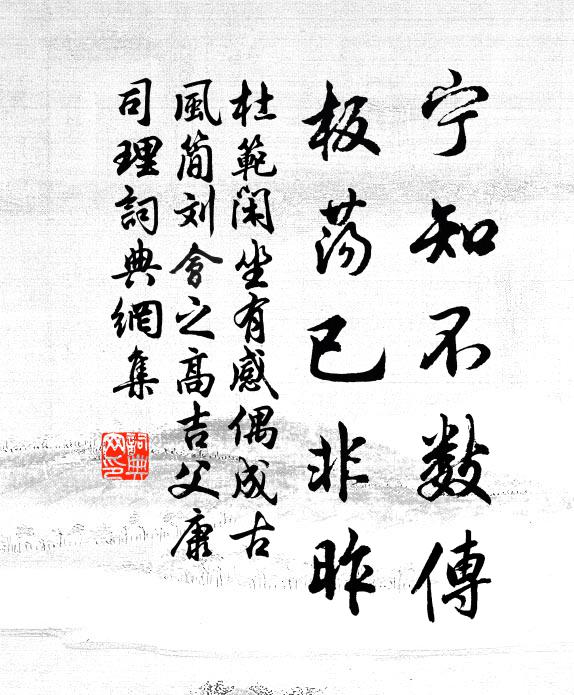 宁知不数傳
板荡已非昨
杜範闲坐有感偶成古
風简刘會之高吉父康
司理詞典網集
詞典网印